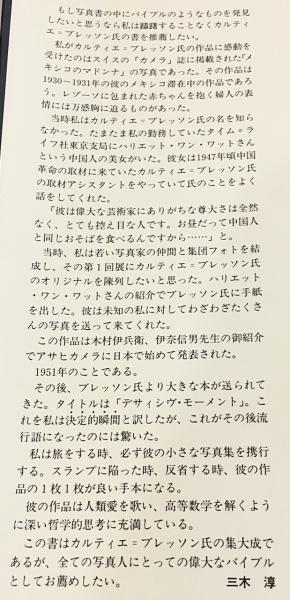 もし写真書の中にバイブルのようなものを発見
したいと思うなら私は躊躇することなくカルティ
エ=ブレッソン氏の書を推薦したい。
私がカルティエ=ブレッソン氏の作品に感動を
受けたのはスイスの「カメラ」誌に掲載された「メ
キシコのマドンナ」の写真であった。その作品は
1930〜1931年の彼のメキシコ滞在中の作品であろ
う。レゾーソに包まれた赤ちゃんを抱く婦人の表
情には万感胸に迫るものがあった。
当時私はカルティエ=ブレッソン氏の名を知ら
なかった。たまたま私の勤務していたタイム=ラ
イフ社東京支局にハリエット・ワン・ワットさん
という中国人の美女がいた。彼女は1947年頃中国
革命の取材に来ていたカルティエ=ブレッソン氏
の取材アシスタントをやっていて氏のことをよく
話をしてくれた。
「彼は偉大な芸術家にありがちな尊大さは全然
なく、とても控え目な人です。お昼だって中国人
と同じおそばを食べるんですから……」と。
当時、私は若い写真家の仲間と集団フォトを結
成し、その第1回展にカルティエ=ブレッソン氏
のオリジナルを陳列したいと思った。ハリエット
・ワン・ワットさんの紹介でブレッソン氏に手紙
を出した。彼は未知の私に対してわざわざたくさ
んの写真を送って来てくれた。
この作品は木村伊兵衛、伊奈信男先生の御紹介
でアサヒカメラに日本で始めて発表された。
1951年のことである。
その後、ブレッソン氏より大きな本が送られて
きた。タイトルは「デサィシヴ・モーメント」。こ
れを私は決定的瞬間と訳したが、これがその後流
行語になったのには驚いた。
私は旅をする時、必ず彼の小さな写真集を携行
する。スランプに陥った時、反省する時、彼の作
品の1枚1枚が良い手本になる。
彼の作品は人類愛を歌い、高等数学を解くよう
に深い哲学的思考に充満している。
この書はカルティエ=ブレッソン氏の集大成で
あるが、全ての写真人にとっての偉大なバイブル
としてお薦めしたい。 三木 淳